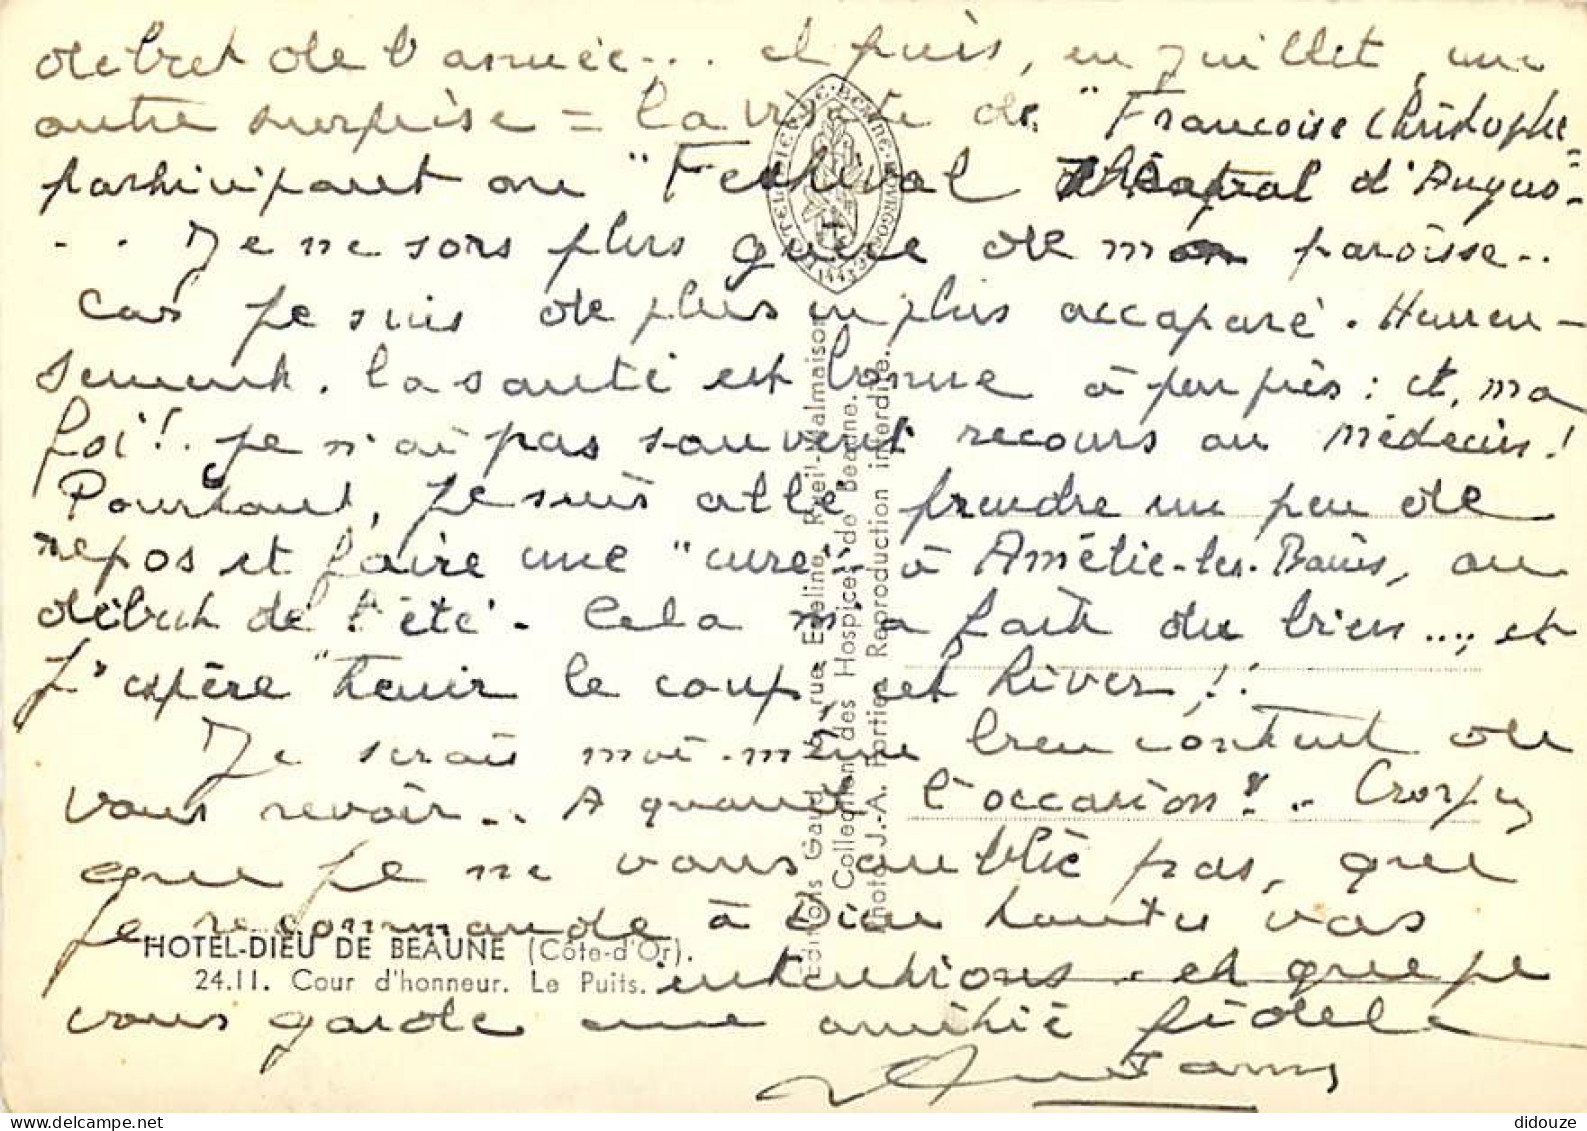 début de l'année... et puis, en juillet, une
autre surprise = la visite de "Françoise Christophe"
participant au "Festival Théâtral d'Angers-
.. Je ne sors plus guère de ma paroisse..
car je suis de plus en plus accaparé. Heureu-
sement, la santé est bonne à peu près : et, ma
foi!. je n'ai pas souvent recours au médecin!
Pourtant, je suis allé prendre un peu de
repos et faire une "cure" à Amélie-les-Bains, au
début de l'été. Cela m'a fait du bien..., et
j'espère "tenir le coup, cet hiver!.
Je serais moi-même bien content de
vous revoir.. A quand l'occasion?.. Croyez
que je ne vous oublie pas, que
je recommande à Dieu toutes vos
intentions. et que je
vous garde une amitié fidèle
HOTEL-DIEU DE BEAUNE (Côte-d'Or).
24.11. Cour d'honneur. Le Puits.
Editions Gaud, rue Eveline, Rueil-Malmaison
Collection des Hospices de Beaune.
Photo J.-A. Fortier. Reproduction interdite.
HOTEL-DIEU DE BEAUNE BOURGOGNE 1443
didouze